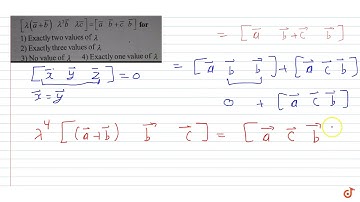 [λ(a⃗+b⃗) λ²b⃗ λc⃗]=[a⃗ b⃗+c⃗ b⃗] for
1) Exactly two values of λ
2) Exactly three values of λ
3) No value of λ 4) Exactly one value of λ
= [a⃗ b⃗+c⃗ b⃗]
[x⃗ y⃗ z⃗]=0
x⃗=y⃗
= [a⃗ b⃗ b⃗]+[a⃗ c⃗ b⃗]
0 + [a⃗ c⃗ b⃗]
λ⁴ [(a⃗+b⃗) b⃗ c⃗] = [a⃗ c⃗ b⃗